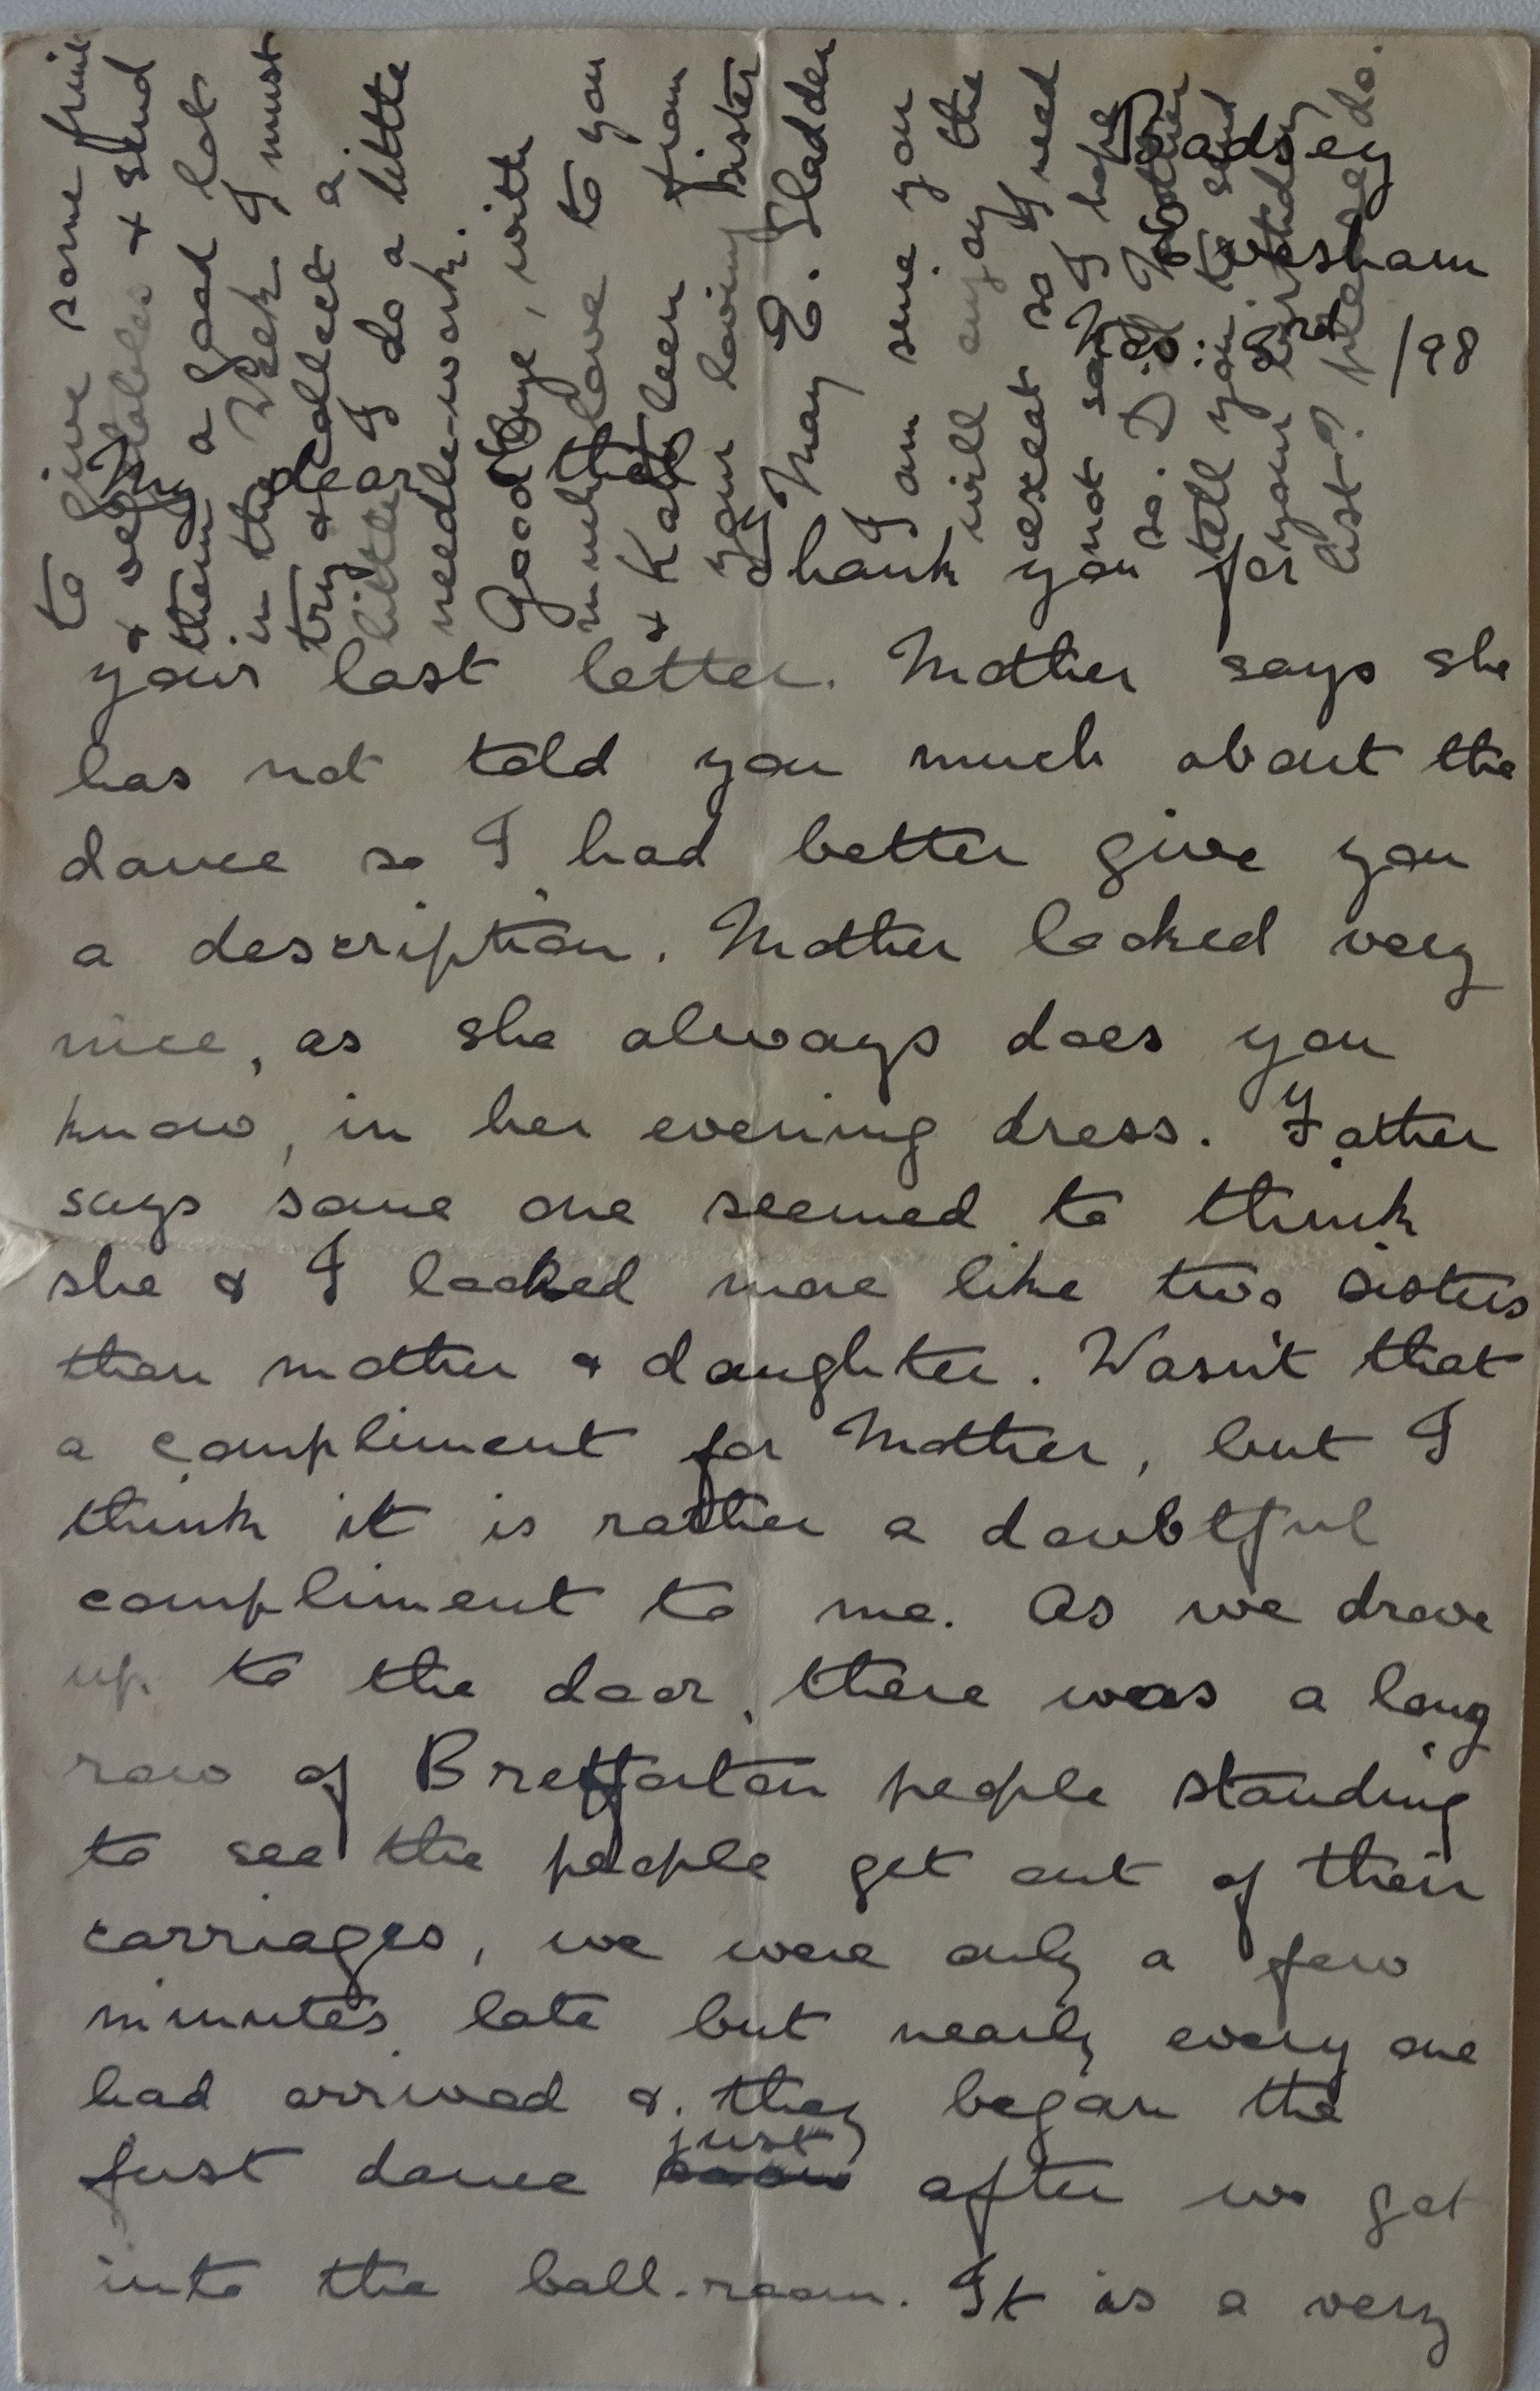 Badsey
Evesham
Nov: 3rd /98
My dear Ethel
Thank you for
your last letter. Mother says she
has not told you much about the
dance so I had better give you
a description. Mother looked very
nice, as she always does you
know, in her evening dress. Father
says some one seemed to think
she & I looked more like two sisters
than mother & daughter. Wasn't that
a compliment for Mother, but I
think it is rather a doubtful
compliment to me. As we drove
up to the door, there was a long
row of Bretforton people standing
to see the people get out of their
carriages, we were only a few
minutes late but nearly every one
had arrived & they began the
first dance just after we got
into the ball-room. It is a very
to give some fruit
& vegetables & send
them a good lot
in the Week. I must
try & collect a
little & I do a little
needle-work.
Good bye, with
much love to you
& Kathleen from
your loving sister
May E. Sladden
I am sure you
will enjoy the
exeat so I need
not say I hope
so. Did Mother
tell you to send
your birthday
list? Please do.